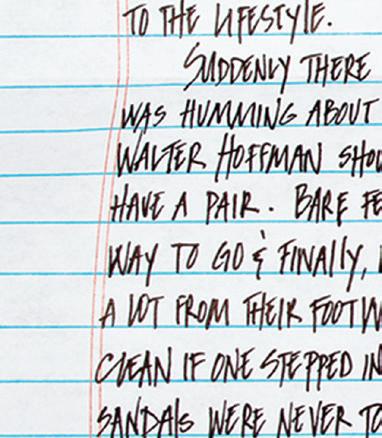 TO THE LIFESTYLE.
SUDDENLY THERE
WAS HUMMING ABOUT
WALTER HOFFMAN
HAVE A PAIR. BARE
WAY TO GO & FINALLY,
A LOT FROM THEIR
CLEAN IF ONE STEPPED IN
SANDALS WERE NEVER